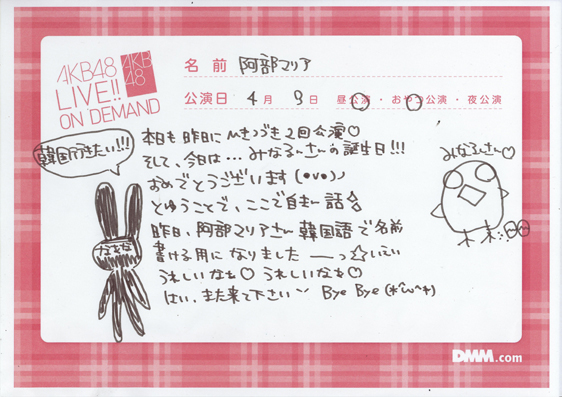 AKB48
LIVE!!
ON DEMAND
AKB
48
名前 阿部マリア
公演日 4月 9日 昼公演・おやつ公演・夜公演
韓国行きたい!!!
本日も昨日にひきつづき2回公演♡
そして、今日は…みなるんさんの誕生日!!!
おめでとうございます(•v•)ノ
とゆうことで、ここで自まん話
昨日、阿部マリアさん韓国語で名前
書ける用になりました ーっ☆いえい
うれしいなぁ♡うれしいなぁ♡
はい、また来て下さい〜 Bye Bye (*^ω^*)
なぁな
みなるんさん♡
DMM.com